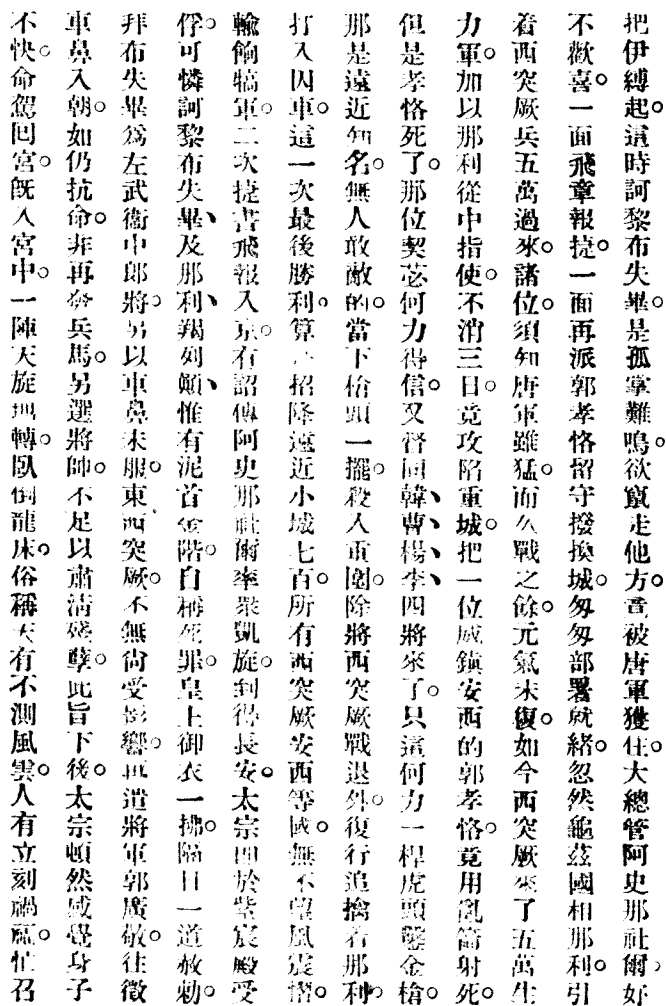 把伊縛起。這時訶黎布失畢是孤掌難鳴。欲竄走他方。竟被唐軍獲住。大總管阿史那社爾好
不歡喜。一面飛章報捷。一面再派郭孝恪留守撥換城。匆匆部署就緒。忽然龜茲國相那利。引
着西突厥兵五萬過來。諸位須知唐軍雖猛。而久戰之餘。元氣未復。如今西突厥來了五萬生
力軍。加以那利從中指使。不消三日。竟攻陷重城。把一位威鎮安西的郭孝恪。竟用亂箭射死。
但是孝恪死了。那位契苾何力得信。又督同韓、曹、楊、李、四將來了。只這何力一桿虎頭鏨金槍。
那是遠近知名。無人敢敵的。當下槍頭一擺。殺入重圍。除將西突厥戰退外。復行追擒着那利。
打入囚車。這一次最後勝利。算招降遠近小城七百。所有西突厥安西等國。無不望風震慴。
輸餉犒軍。二次捷書飛報入京。有詔傳阿史那社爾率衆凱旋。到得長安。太宗即於紫宸殿受
俘。可憐訶黎布失畢、及那利、羯列顛、惟有泥首金階。自稱死罪。皇上御衣一拂。隔日一道赦勅。
拜布失畢爲左武衞中郎將。另以車鼻未服。東西突厥不無尙受影響。再遣將軍郭廣敬。往徵
車鼻入朝。如仍抗命。非再發兵馬。另選將帥。不足以肅清殘孽。此旨下後。太宗頓然感覺身子
不快。命駕回宮。旣入宮中。一陣天旋地轉。臥倒龍床。俗稱天有不測風雲。人有立刻禍福。忙召